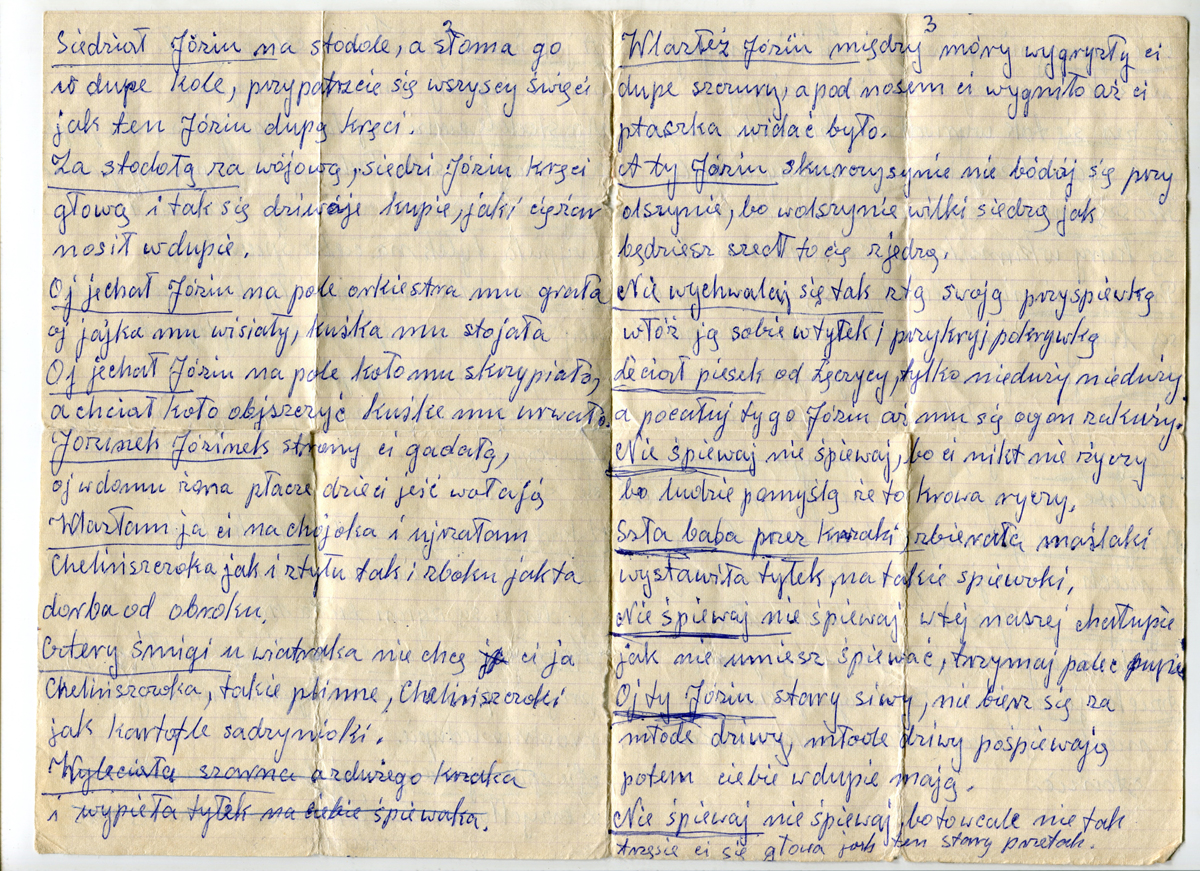 2
Siedział Józiu na stodole, a słoma go
w dupe kole, przypatrzcie się wszyscy święci
jak ten Józiu dupą kręci.
Za stodołą za wójową, siedzi Józiu kręci
głową i tak się dziwóje kupie, jaki ciężar
nosił w dupie.
Oj jechał Józiu na pole orkiestra mu grała
oj jajka mu wisiały, kuśka mu stojała
Oj jechał Józiu na pole koło mu skrzypiało,
a chciał koło objszczyć kuśke mu urwało.
Józinek Józinek strony ci gadałą,
oj w domu żona płacze dzieci jeść wołają
Wlazłam ja ci na chojoka i ujrzałam
Cheliniszczoka jak i ztyłu tak i zboku jak ta
dorba od obroku.
Cztery śmigi u wiatraka nie chcę ci ja
Cheliniszczoka, takie plinne, Cheliniszczoki
jak kartofle sadzynioki.
Wyleciała szarna zdużego krzaka
i wypieła tyłek na ciebie śpiewaka.
3
Wlazłeź Józiu między móry wygryzły ci
dupe szczury, a pod nosem ci wygniło aż ci
ptaszka widać było.
A ty Józiu skurczysynie nie bódój się przy
olszynie, bo wolszynie wilki siedzą jak
będziesz szedł to cię zjedzą.
Nie wychwalaj się tak ztą swoją przyśpiewką
włóż ją sobie wtyłek i przykryj pokrywką
leciał piesek od Łęczycy, tylko nieduży nieduży
a pocałuj tygo Józiu aż mu się ogon zakuży.
Nie śpiewaj nie śpiewaj, bo ci nikt nie życzy
bo ludzie pomyślą że to krowa ryczy.
Szła baba przez krzaki, zbierała maślaki
wystawiła tyłek, na takie śpiewoki.
Nie śpiewaj nie śpiewaj wtej naszej chałupie
jak nie umiesz śpiewać, trzymaj palec
Oj ty Józiu stary siwy, nie bierz się za
młode dziwy, młode dziwy pośpiewają
potem ciebie wdupie mają.
Nie śpiewaj nie śpiewaj bo to wcale nie tak
trzęsie ci się głowa jak ten stary przetak.